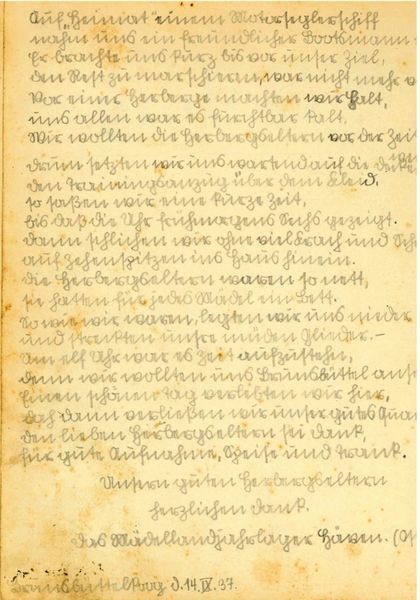 Auf „Heimat" einem Motorseglerschiff
nahm uns ein freundlicher Bootsmann
Er brachte uns kurz bis vor unser Ziel,
den Rest zu marschieren, war nicht mehr v
Vor einer Herberge machten wir halt,
uns allen war es furchtbar kalt.
Wir wollten die Herbergseltern vor der Zeit
drum setzten wir uns wartend auf die
den Trainingsanzug über dem Kleid,
so saßen wir eine kurze Zeit,
bis daß die Uhr frühmorgens Sechs gezeigt.
Dann schlichen wir ohne viel Krach und
auf Zehenspitzen ins Haus hinein.
Die Herbergseltern waren so nett,
sie hatten für jedes Mädel ein Bett.
So wie wir waren, legten wir uns nieder
und streckten unsre müden Glieder.–
Um elf Uhr war es Zeit aufzustehen,
denn wir wollten uns Brunsbüttel anse
Einen schönen Tag verlebten wir hier,
doch dann verließen wir unser gutes Qua
den lieben Herbergseltern sei Dank,
für gute Aufnahme, Speise und Trank.
Unsern guten Herbergseltern
herzlichen Dank.
Das Mädellandjahrlager Häven. (
Brunsbüttelkoog d. 14. IX. 37.